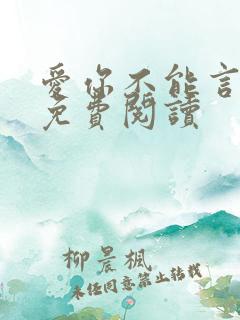 愛你不能言
免費閱讀
柳晨楓
未經同意禁止轉載